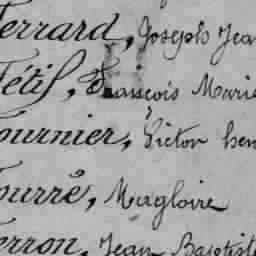 Ferrard, Joseph Jea
Fétis, François Marie
Fournier, Victor hen
Fourré, Magloire
Ferron, Jean Baptist